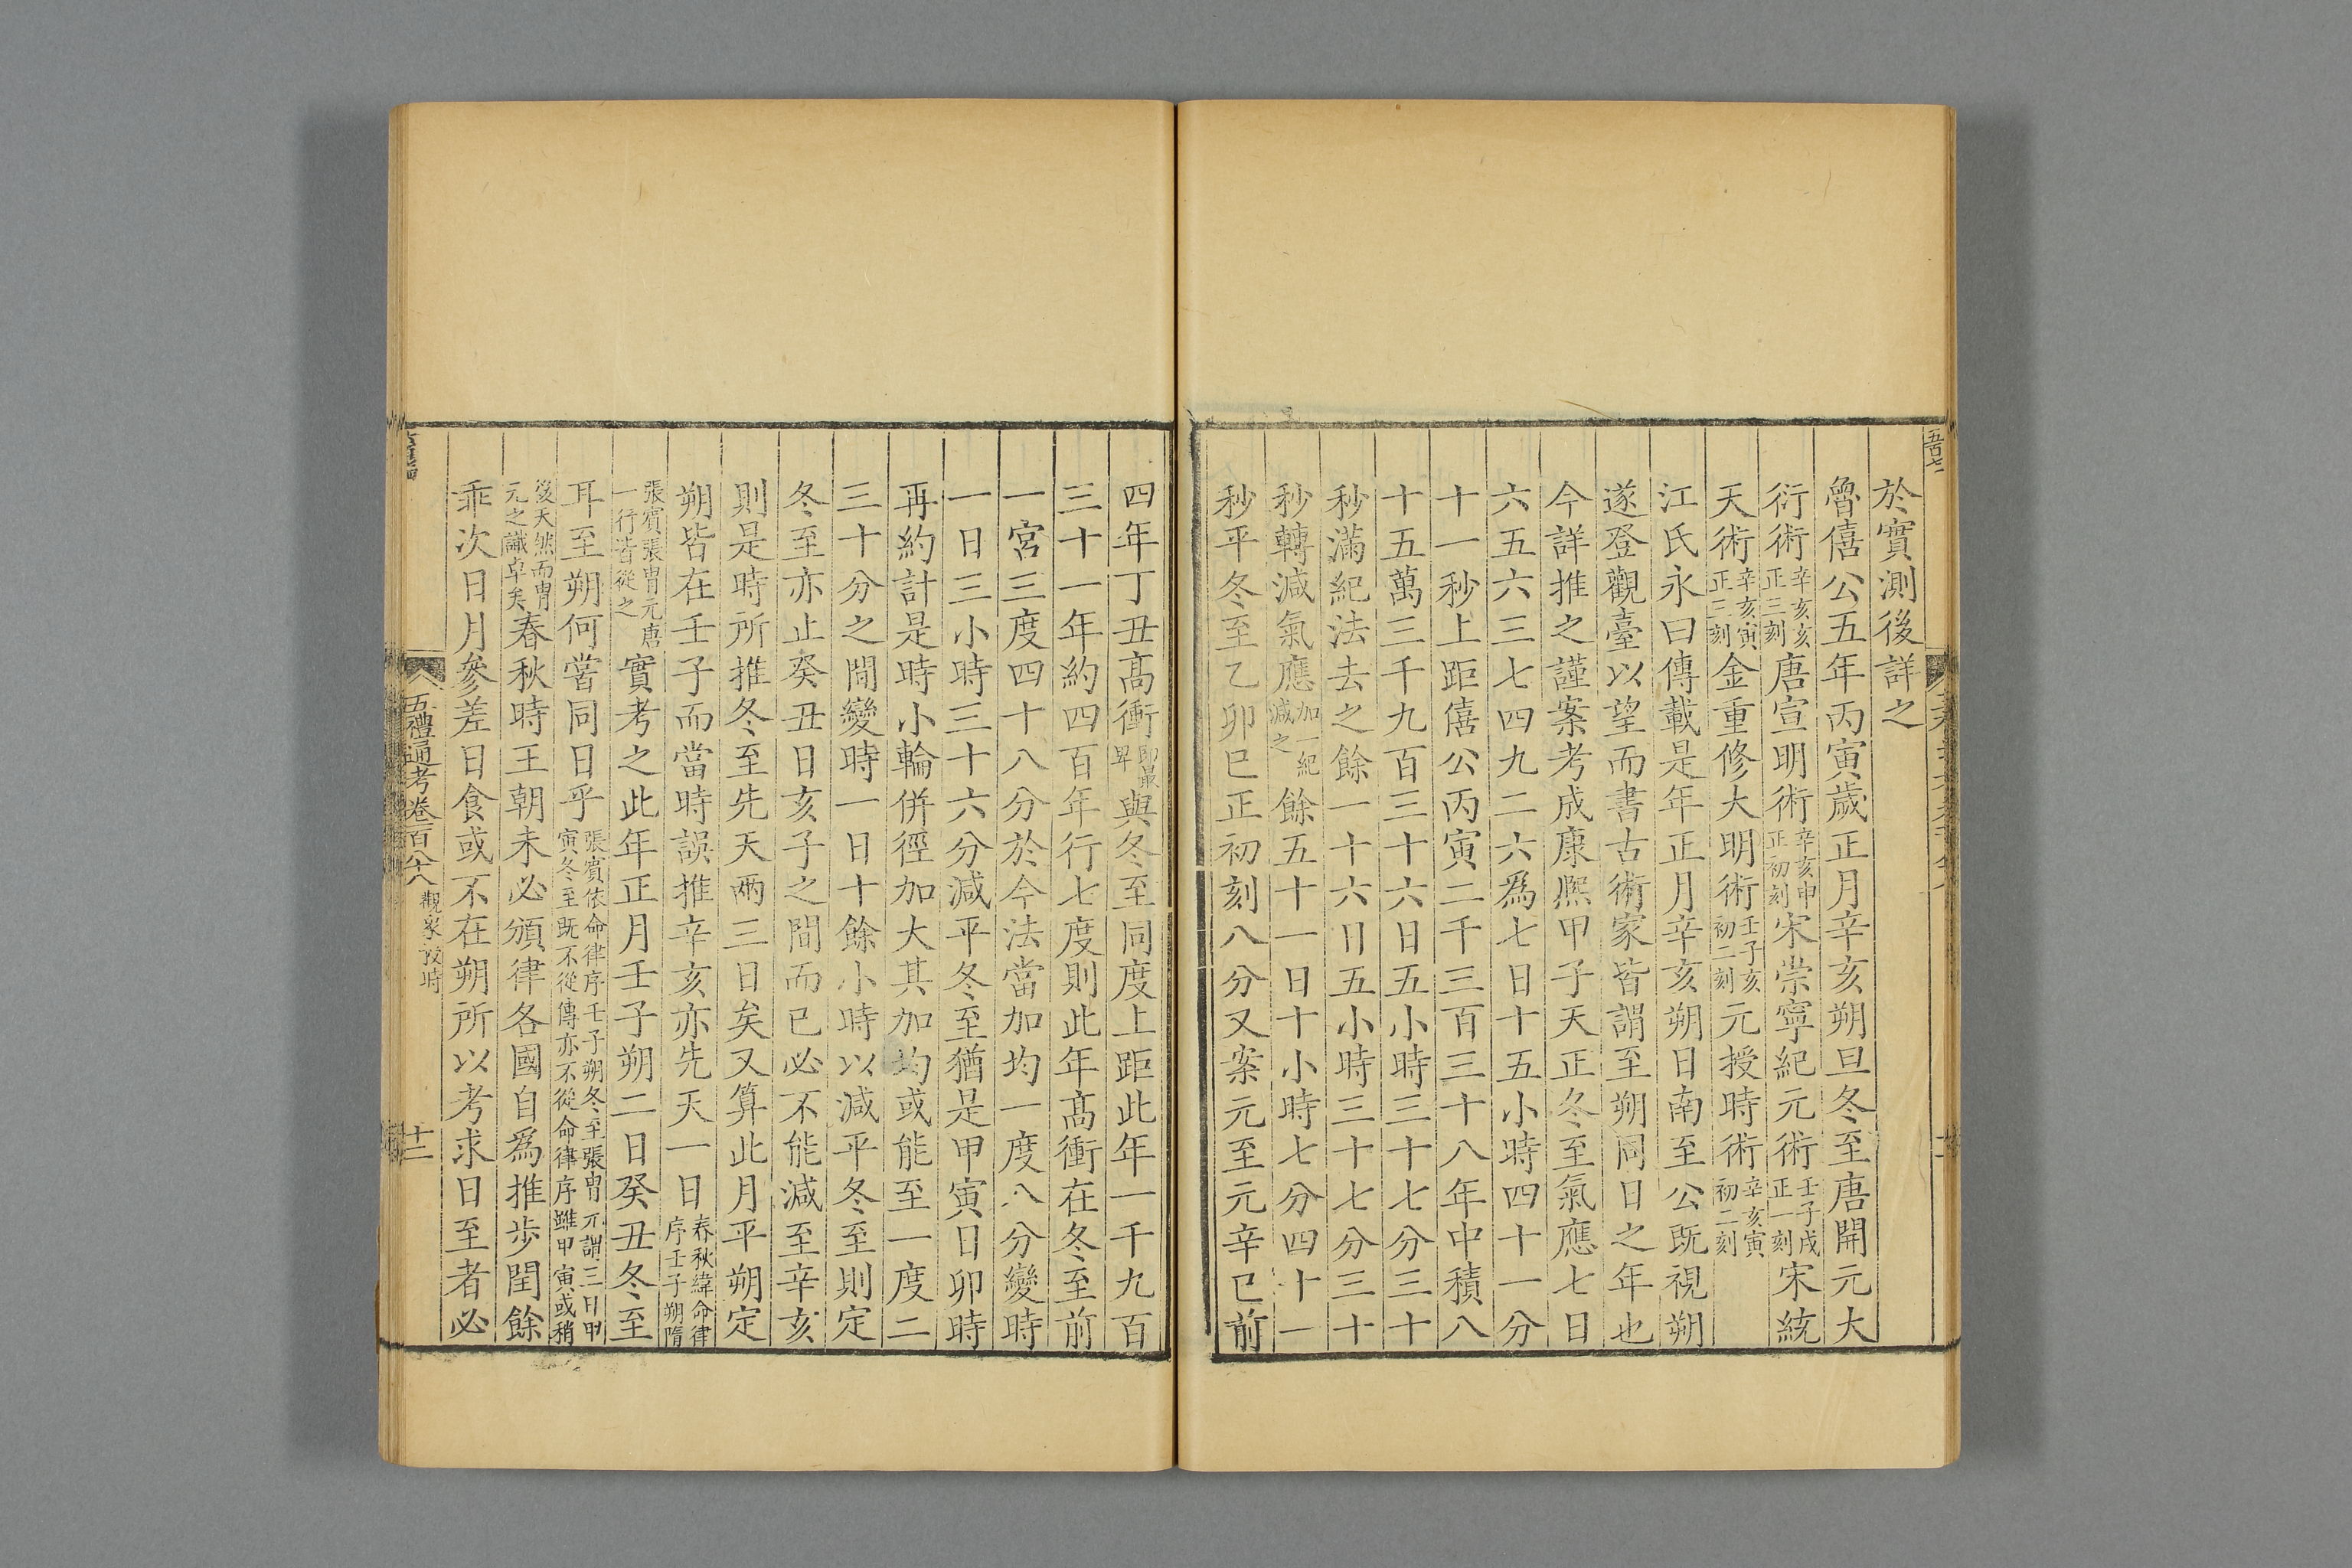 於實測後詳之
魯僖公五年丙寅歲正月辛亥朔旦冬至唐開元大
衍術辛亥亥正三刻唐宣明術辛亥申正初刻宋崇寧紀元術壬子戌正一刻宋統
天術辛亥寅正三刻金重修大明術壬子亥初二刻元授時術辛亥寅初二刻
江氏永曰傳載是年正月辛亥朔日南至公既視朔
遂登觀臺以望而書古術家皆謂至朔同日之年也
今詳推之謹案考成康熙甲子天正冬至氣應七日
六五六三七四九二六為七日十五小時四十一分
十一秒上距僖公丙寅二千三百三十八年中積八
十五萬三千九百三十六日五小時三十七分三十
秒滿紀法去之餘一十六日五小時三十七分三十
秒轉減氣應加一紀減之餘五十一日十小時七分四十一
秒平冬至乙卯巳正初刻八分又案元至元辛巳前
四年丁丑高衝即最卑與冬至同度上距此年一千九百
三十一年約四百年行七度則此年高衝在冬至前
一宮三度四十八分於今法當加均一度八分變時
一日三小時三十六分減平冬至猶是甲寅日卯時
再約計是時小輪併徑加大其加均或能至一度二
三十分之間變時一日十餘小時以減平冬至則定
冬至亦止癸丑日亥子之間而已必不能減至辛亥
則是時所推冬至先天兩三日矣又算此月平朔定
朔皆在壬子而當時誤推辛亥亦先天一日春秋緯命律序壬子朔隋
張賓張冑元唐一行皆從之實考之此年正月壬子朔二日癸丑冬至
耳至朔何嘗同日乎張賓依命律序壬子朔冬至張冑元謂三日甲寅冬至既不從傳亦不從命律序雖甲寅或稍
後天然而冑元之識卓矣春秋時王朝未必頒律各國自為推步閏餘
乖次日月參差日食或不在朔所以考求日至者必
五禮通考卷一百八十八 觀象授時
十二